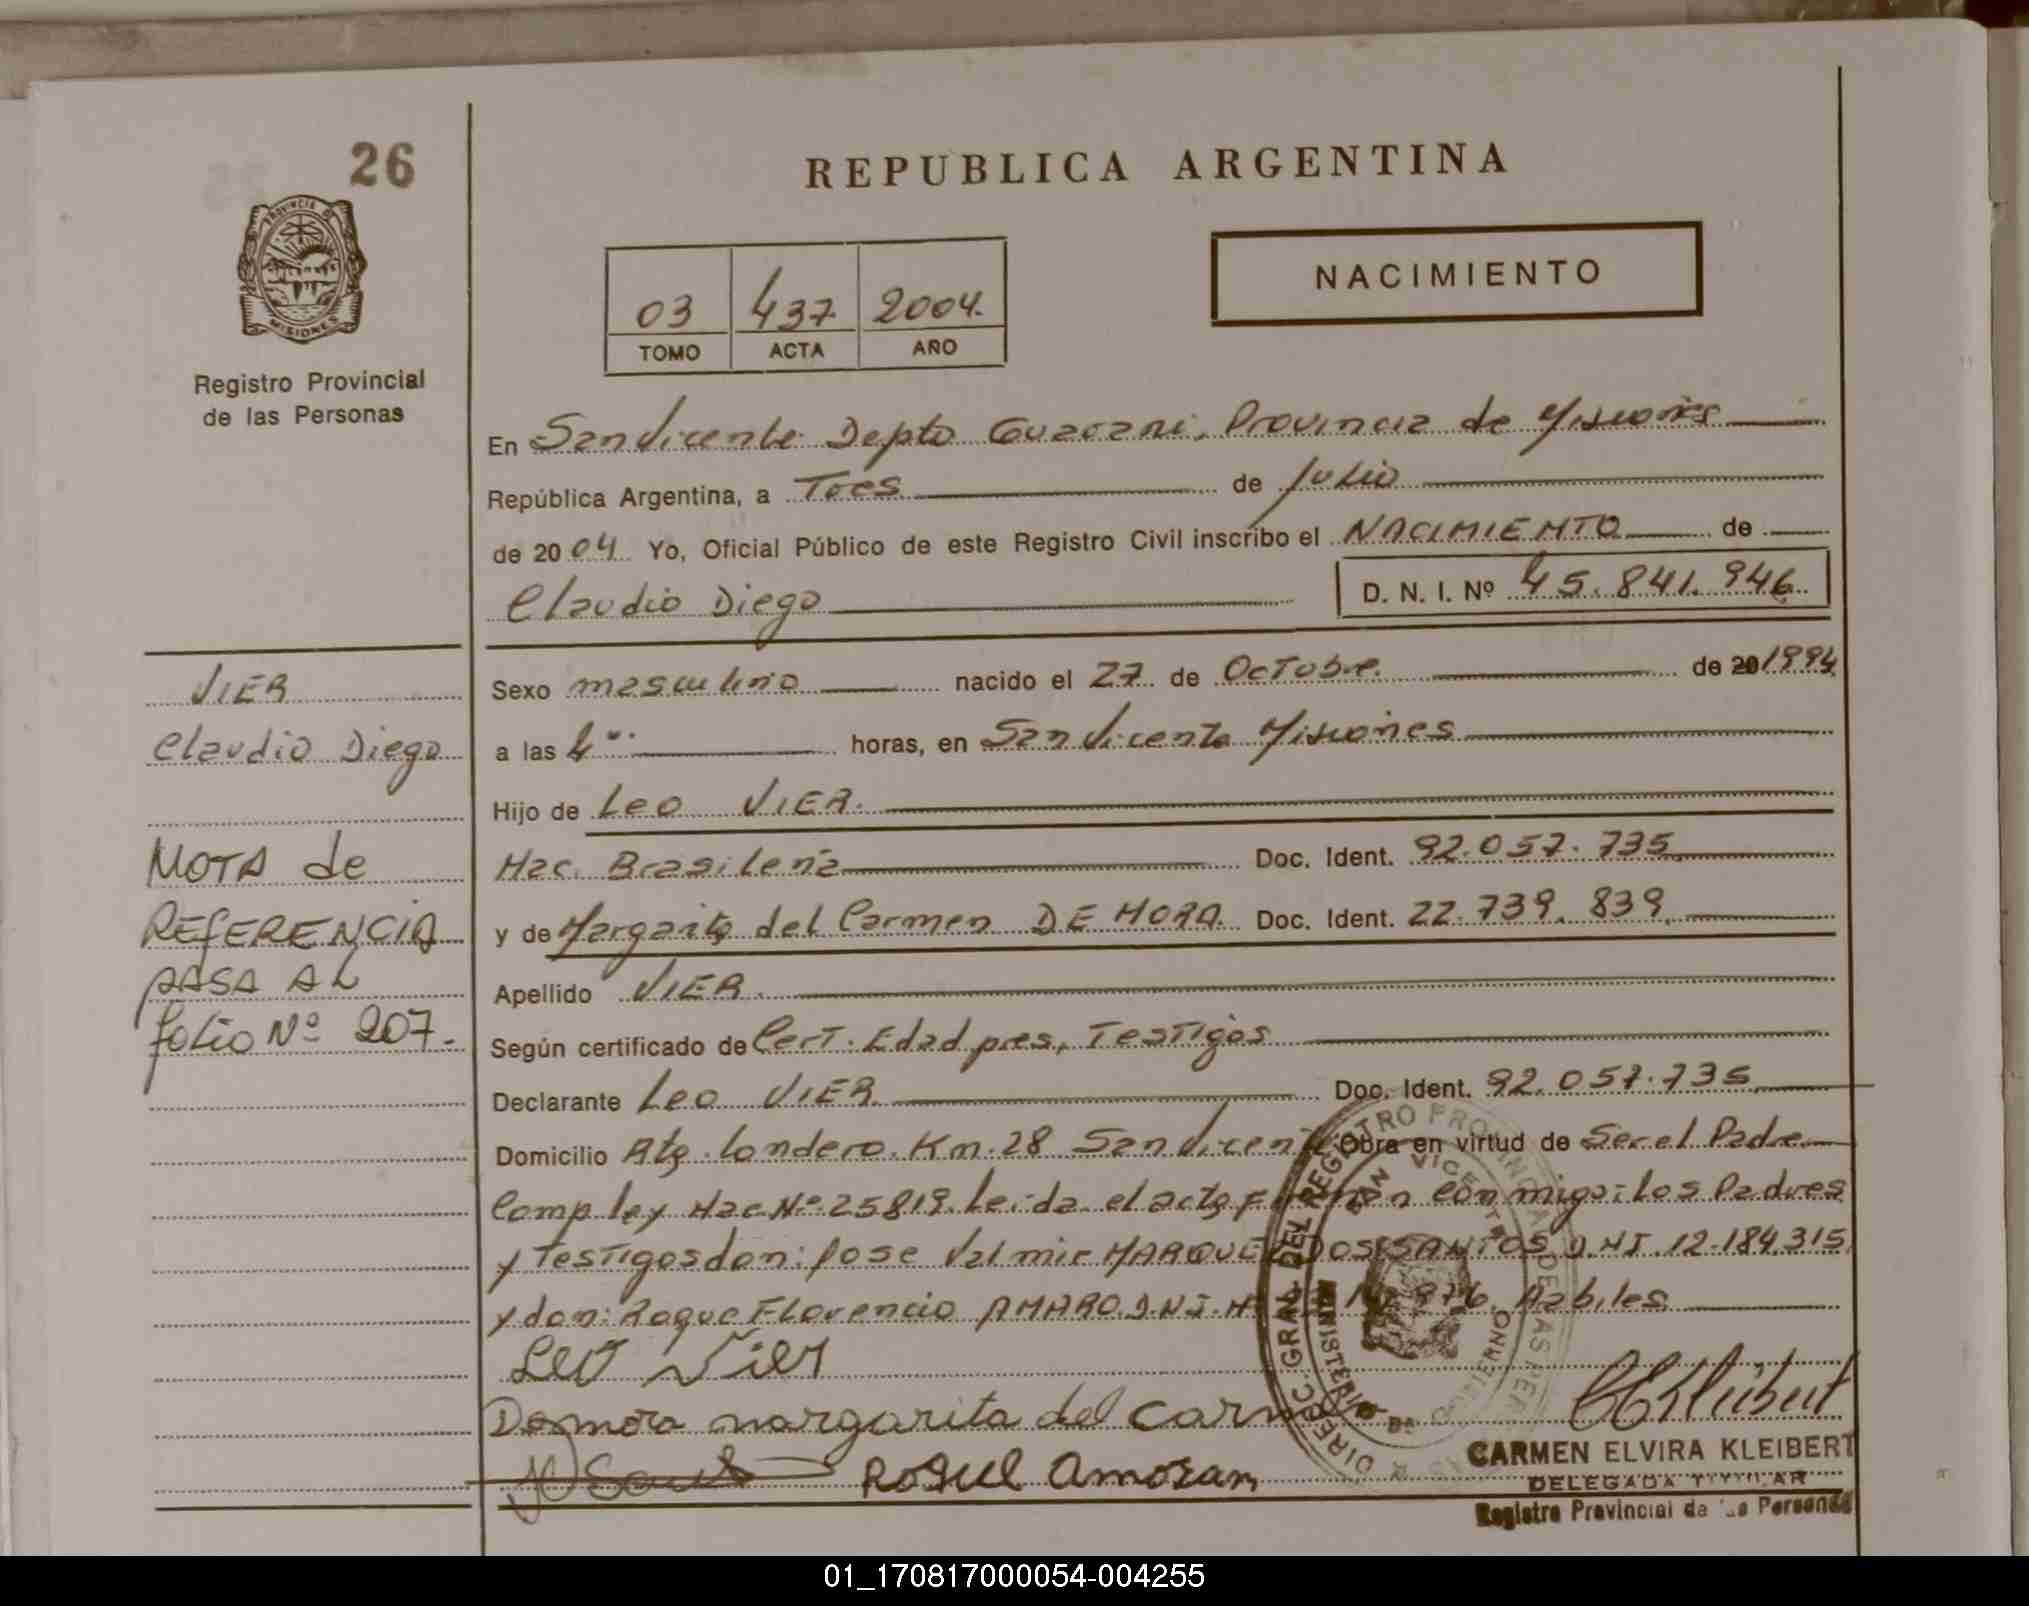 26
REPUBLICA ARGENTINA
PROVINCIA DE
MISIONES
Registro Provincial
de las Personas
NACIMIENTO
03 437 2004.
TOMO ACTA AÑO
En San Vicente Depto Guarani, Provincia de Misiones
República Argentina, a Tres de Julio
de 2004 Yo, Oficial Público de este Registro Civil inscribo el NACIMIENTO de
Claudio Diego D. N. I. Nº 45.841.946.
VIER
Claudio Diego
NOTA de
REFERENCIA
PASA AL
folio Nº 207.-
Sexo masculino nacido el 27 de Octubre. de 20 1994
a las 4 horas, en San Vicente Misiones
Hijo de Leo VIER.
Nac. Brasileña Doc. Ident. 92.057.735
y de Margarita del Carmen DE MORA. Doc. Ident. 22.739.839
Apellido VIER.
Según certificado de Cert. Edad pres, Testigos
Declarante Leo VIER Doc. Ident. 92.057.735
Domicilio Alta. Londero. Km. 28 San Vicente Obra en virtud de Ser el Padre
Comp ley Nac Nº 25819. Leida el acta Firman Con migo: los Padres
y Testigos don: Jose Valmir MARQUEZ DOS SANTOS D.N.I. 12.184.315
y don: Roque Florencio AMARO D.N.I. Nº Habiles
Leo Vier
Demora margarita del Carmen
CARMEN ELVIRA KLEIBERT
DELEGADA TITULAR
Registro Provincial de las Personas
DIREC. GRAL DEL REGISTRO PROVINCIAL DE LAS PER
SAN VICENTE
MINISTERIO DE GOBIERNO
01_170817000054-004255